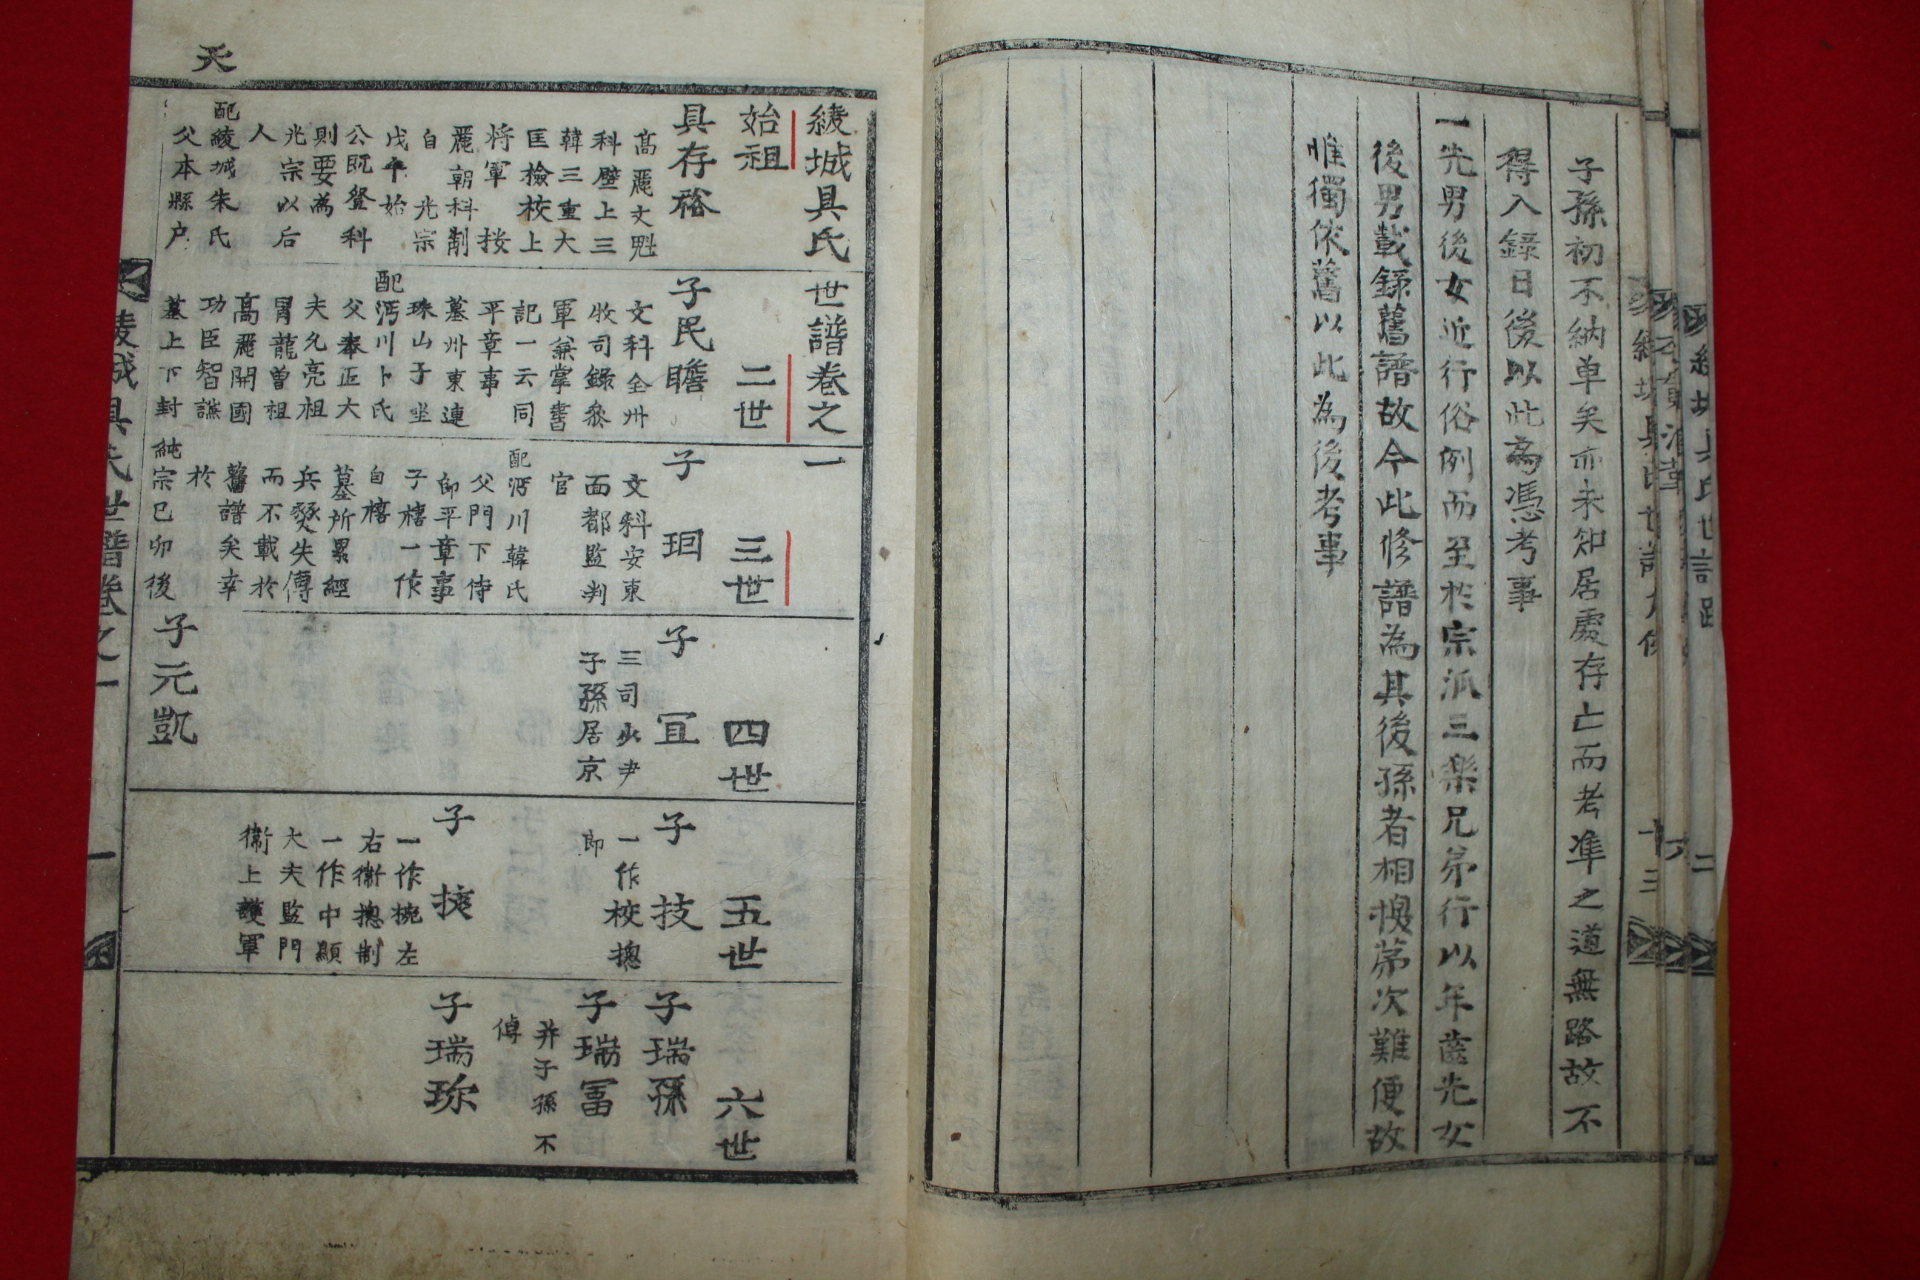 子孫初不納单矣亦未知居處存亡而考準之道無路故不
得入錄日後以此為憑考事
一先男後女近行俗例而至於宗派三樂兄弟行以年齒先女
後男載錄舊譜故今此修譜為其後孫者相換第次難便故
惟獨依舊以此為後考事
天
綾城具氏世譜卷之一
始祖
二世
三世
四世
五世
六世
具存裕
高麗文魁
科壁上三
韓三重大
匡檢校上
将軍 按
麗朝科制
自 光宗
戊午始
公既登科
則要為
光宗以后
人
配綾城朱氏
父本縣户
子民瞻
文科全州
收司錄叅
軍兼掌書
記一云同
平章事
墓州東連
珠山子坐
配沔川卜氏
父奉正大
夫允亮祖
胃龍曽祖
高麗開國
功臣智謙
墓上下封
子珚
文科安東
面都監判
官
配沔川韓氏
父門下侍
郎平章事
子禧一作
自禧
墓所累經
兵燹失傳
而不載於
舊譜矣幸
於
純宗已卯後
子冝
三司少尹
子孫居京
子元凱
子技
一作校摠
郎
子挾
一作捥左
右衛摠制
一作中顯
大夫監門
衞上護軍
子瑞孫
子瑞冨
并子孫不
傳
子瑞珎
綾城具氏世譜卷之一
一